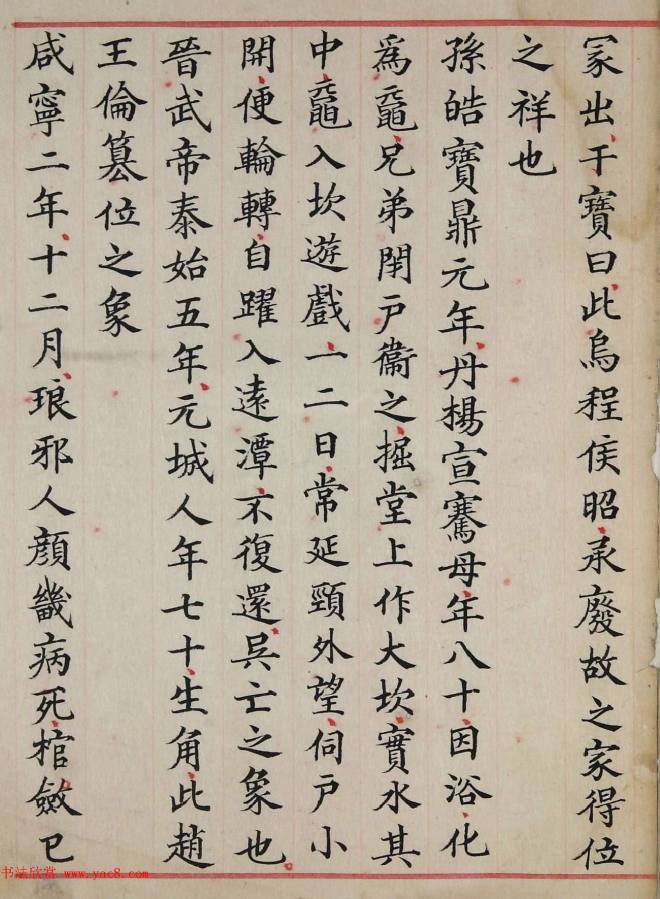 冢出干寶曰此烏程侯昭承廢故之家得位
之祥也
孫皓寶鼎元年丹揚宣騫母年八十因浴化
為黿兄弟閉戶衞之掘堂上作大坎實水其
中黿入坎遊戲一二日常延頸外望伺戶小
開便輪轉自躍入遠潭不復還吳亡之象也
晉武帝泰始五年元城人年七十生角此趙
王倫篡位之象
咸寧二年十二月琅邪人顏畿病死棺斂已
书法欣赏 www.yac8.com